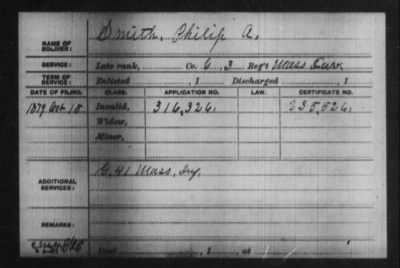 NAME OF SOLDIER: Smith, Philip A.
SERVICE: Late rank, Co. G, 3 Reg't Mass Cav.
TERM OF SERVICE: Enlisted , 1 Discharged , 1
DATE OF FILING. CLASS. APPLICATION NO. LAW. CERTIFICATE NO.
1879 Oct 18 Invalid, 316,326. 235,526.
Widow,
Minor,
ADDITIONAL SERVICES: G. 41 Mass. Inf.
REMARKS:
Died , 1 , at